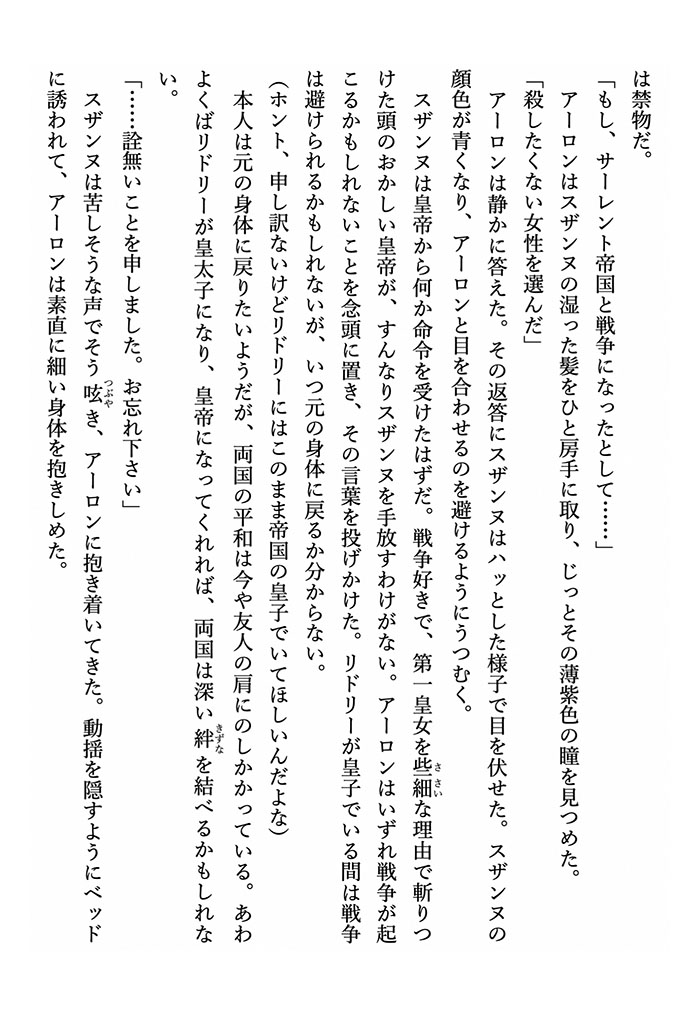 は禁物だ。
「もし、サーレント帝国と戦争になったとして……」
アーロンはスザンヌの湿った髪をひと房手に取り、じっとその薄紫色の瞳を見つめた。
「殺したくない女性を選んだ」
アーロンは静かに答えた。その返答にスザンヌはハッとした様子で目を伏せた。スザンヌの
顔色が青くなり、アーロンと目を合わせるのを避けるようにうつむく。
スザンヌは皇帝から何か命令を受けたはずだ。戦争好きで、第一皇女を些細な理由で斬りつ
けた頭のおかしい皇帝が、すんなりスザンヌを手放すわけがない。アーロンはいずれ戦争が起
こるかもしれないことを念頭に置き、その言葉を投げかけた。リドリーが皇子でいる間は戦争
は避けられるかもしれないが、いつ元の身体に戻るか分からない。
(ホント、申し訳ないけどリドリーにはこのまま帝国の皇子でいてほしいんだよな)
本人は元の身体に戻りたいようだが、両国の平和は今や友人の肩にのしかかっている。あわ
よくばリドリーが皇太子になり、皇帝になってくれれば、両国は深い絆を結べるかもしれな
い。
「……詮無いことを申しました。お忘れ下さい」
スザンヌは苦しそうな声でそう呟き、アーロンに抱き着いてきた。動揺を隠すようにベッド
に誘われて、アーロンは素直に細い身体を抱きしめた。